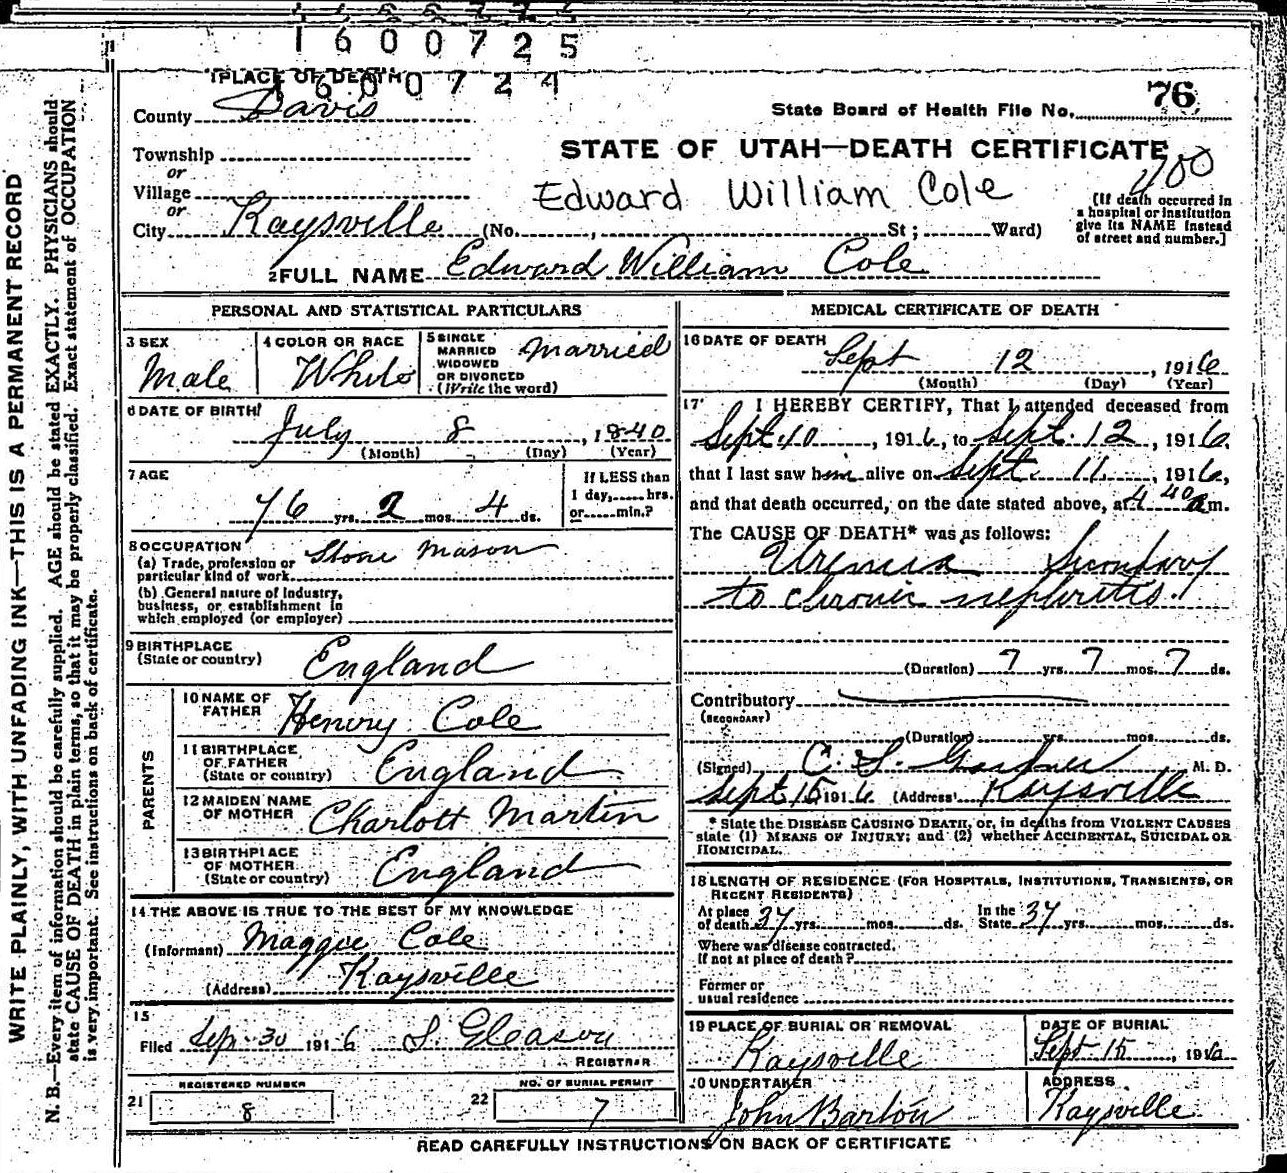 1600725
1600724
1 PLACE OF DEATH
County Davis
State Board of Health File No. 76
Township
or
STATE OF UTAH—DEATH CERTIFICATE
Village
Edward William Cole
400
or
City Kaysville (No. , St ; Ward)
[If death occurred in
a hospital or institution
give its NAME instead
of street and number.]
2 FULL NAME Edward William Cole
PERSONAL AND STATISTICAL PARTICULARS
3 SEX
Male
4 COLOR OR RACE
White
5 SINGLE
MARRIED
WIDOWED
OR DIVORCED
(Write the word)
Married
6 DATE OF BIRTH
July 8, 1840
(Month) (Day) (Year)
7 AGE
76 yrs. 2 mos. 4 ds.
If LESS than
1 day, hrs.
or min.?
8 OCCUPATION
(a) Trade, profession or
particular kind of work Stone Mason
(b) General nature of industry,
business, or establishment in
which employed (or employer)
9 BIRTHPLACE
(State or country) England
PARENTS
10 NAME OF
FATHER Henry Cole
11 BIRTHPLACE
OF FATHER
(State or country) England
12 MAIDEN NAME
OF MOTHER Charlott Martin
13 BIRTHPLACE
OF MOTHER
(State or country) England
14 THE ABOVE IS TRUE TO THE BEST OF MY KNOWLEDGE
(Informant) Maggie Cole
(Address) Kaysville
15
Filed Sep. 30 1916 S. Gleason
REGISTRAR
REGISTERED NUMBER
21 8
NO. OF BURIAL PERMIT
22 7
MEDICAL CERTIFICATE OF DEATH
16 DATE OF DEATH
Sept 12, 1916
(Month) (Day) (Year)
17 I HEREBY CERTIFY, That I attended deceased from
Sept. 10, 1916, to Sept. 12, 1916,
that I last saw him alive on Sept. 11, 1916,
and that death occurred, on the date stated above, at 4 40 a m.
The CAUSE OF DEATH* was as follows:
Uremia Secondary
to chronic nephritis.
(Duration) 7 yrs. 7 mos. 7 ds.
Contributory
(SECONDARY)
(Duration) yrs. mos. ds.
(Signed) C. S. Gardner M. D.
Sept 15 1916 (Address) Kaysville
* State the DISEASE CAUSING DEATH, or, in deaths from VIOLENT CAUSES
state (1) MEANS OF INJURY; and (2) whether ACCIDENTAL, SUICIDAL OR
HOMICIDAL.
18 LENGTH OF RESIDENCE (FOR HOSPITALS, INSTITUTIONS, TRANSIENTS, OR
RECENT RESIDENTS)
At place
of death 37 yrs. mos. ds.
In the
State 37 yrs. mos. ds.
Where was disease contracted,
If not at place of death?
Former or
usual residence
19 PLACE OF BURIAL OR REMOVAL
Kaysville
DATE OF BURIAL
Sept 15, 1916
20 UNDERTAKER
John Barton
ADDRESS
Kaysville
READ CAREFULLY INSTRUCTIONS ON BACK OF CERTIFICATE
WRITE PLAINLY, WITH UNFADING INK—THIS IS A PERMANENT RECORD
N. B.—Every item of information should be carefully supplied. AGE should be stated EXACTLY. PHYSICIANS should
state CAUSE OF DEATH in plain terms, so that it may be properly classified. Exact statement of OCCUPATION
is very important. See instructions on back of certificate.